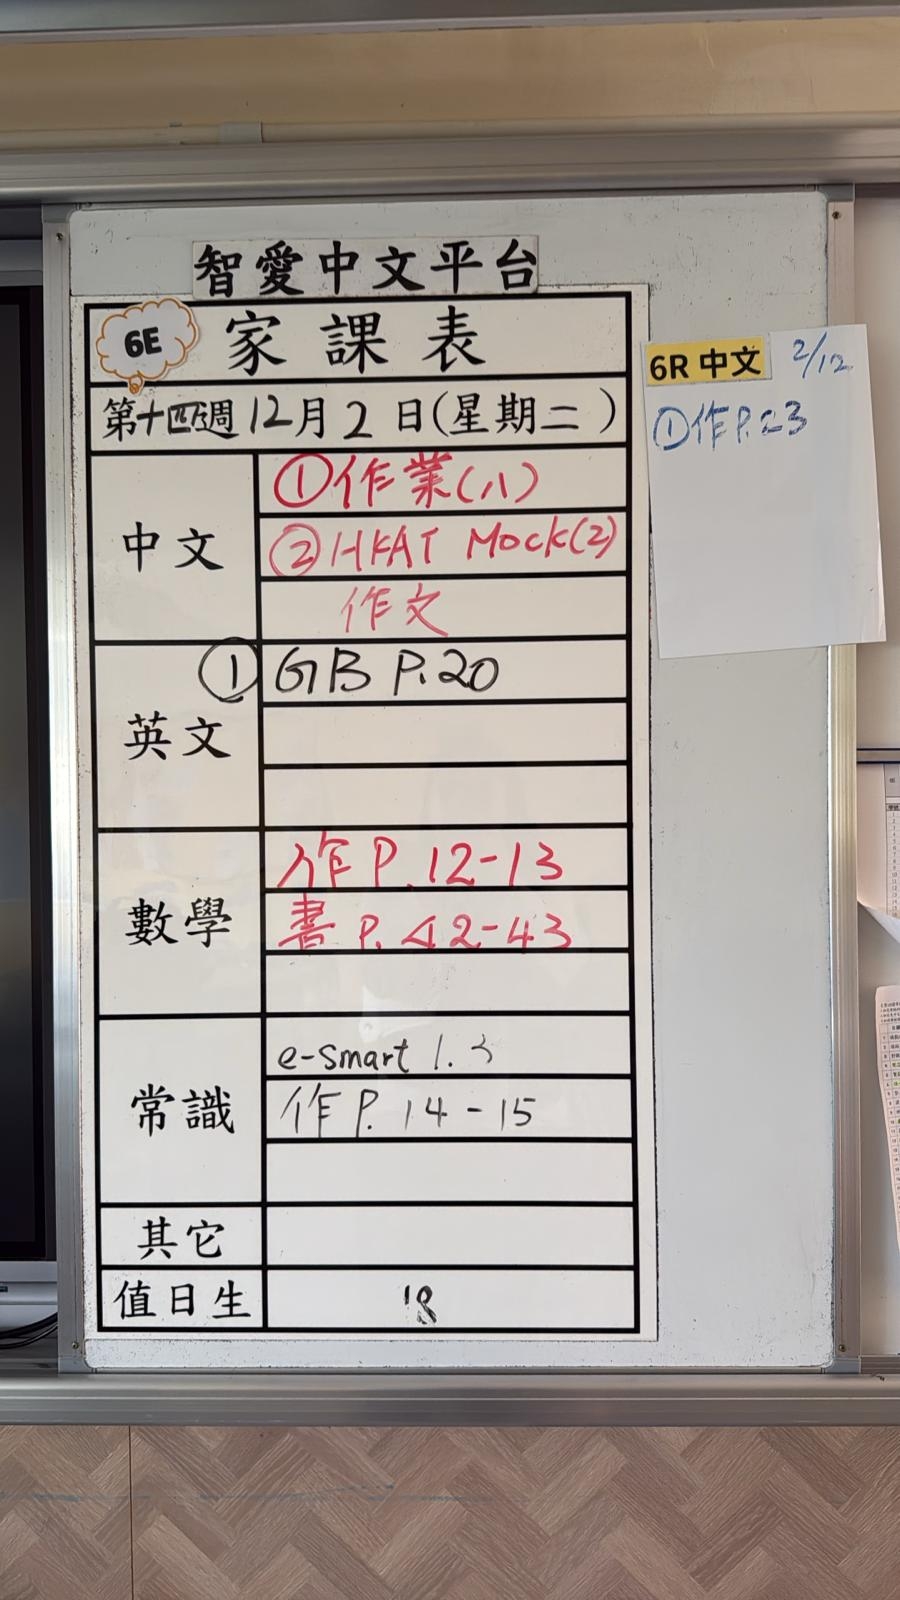 智愛中文平台
6E
家課表
第十四週12月2日(星期二)
中文
①作業(八)
②HKAT Mock(2)
作文
英文
① GB P.20
數學
作 P.12-13
書 P.42-43
常識
e-smart 1.3
作 P.14-15
其它
值日生
18
6R 中文 2/12